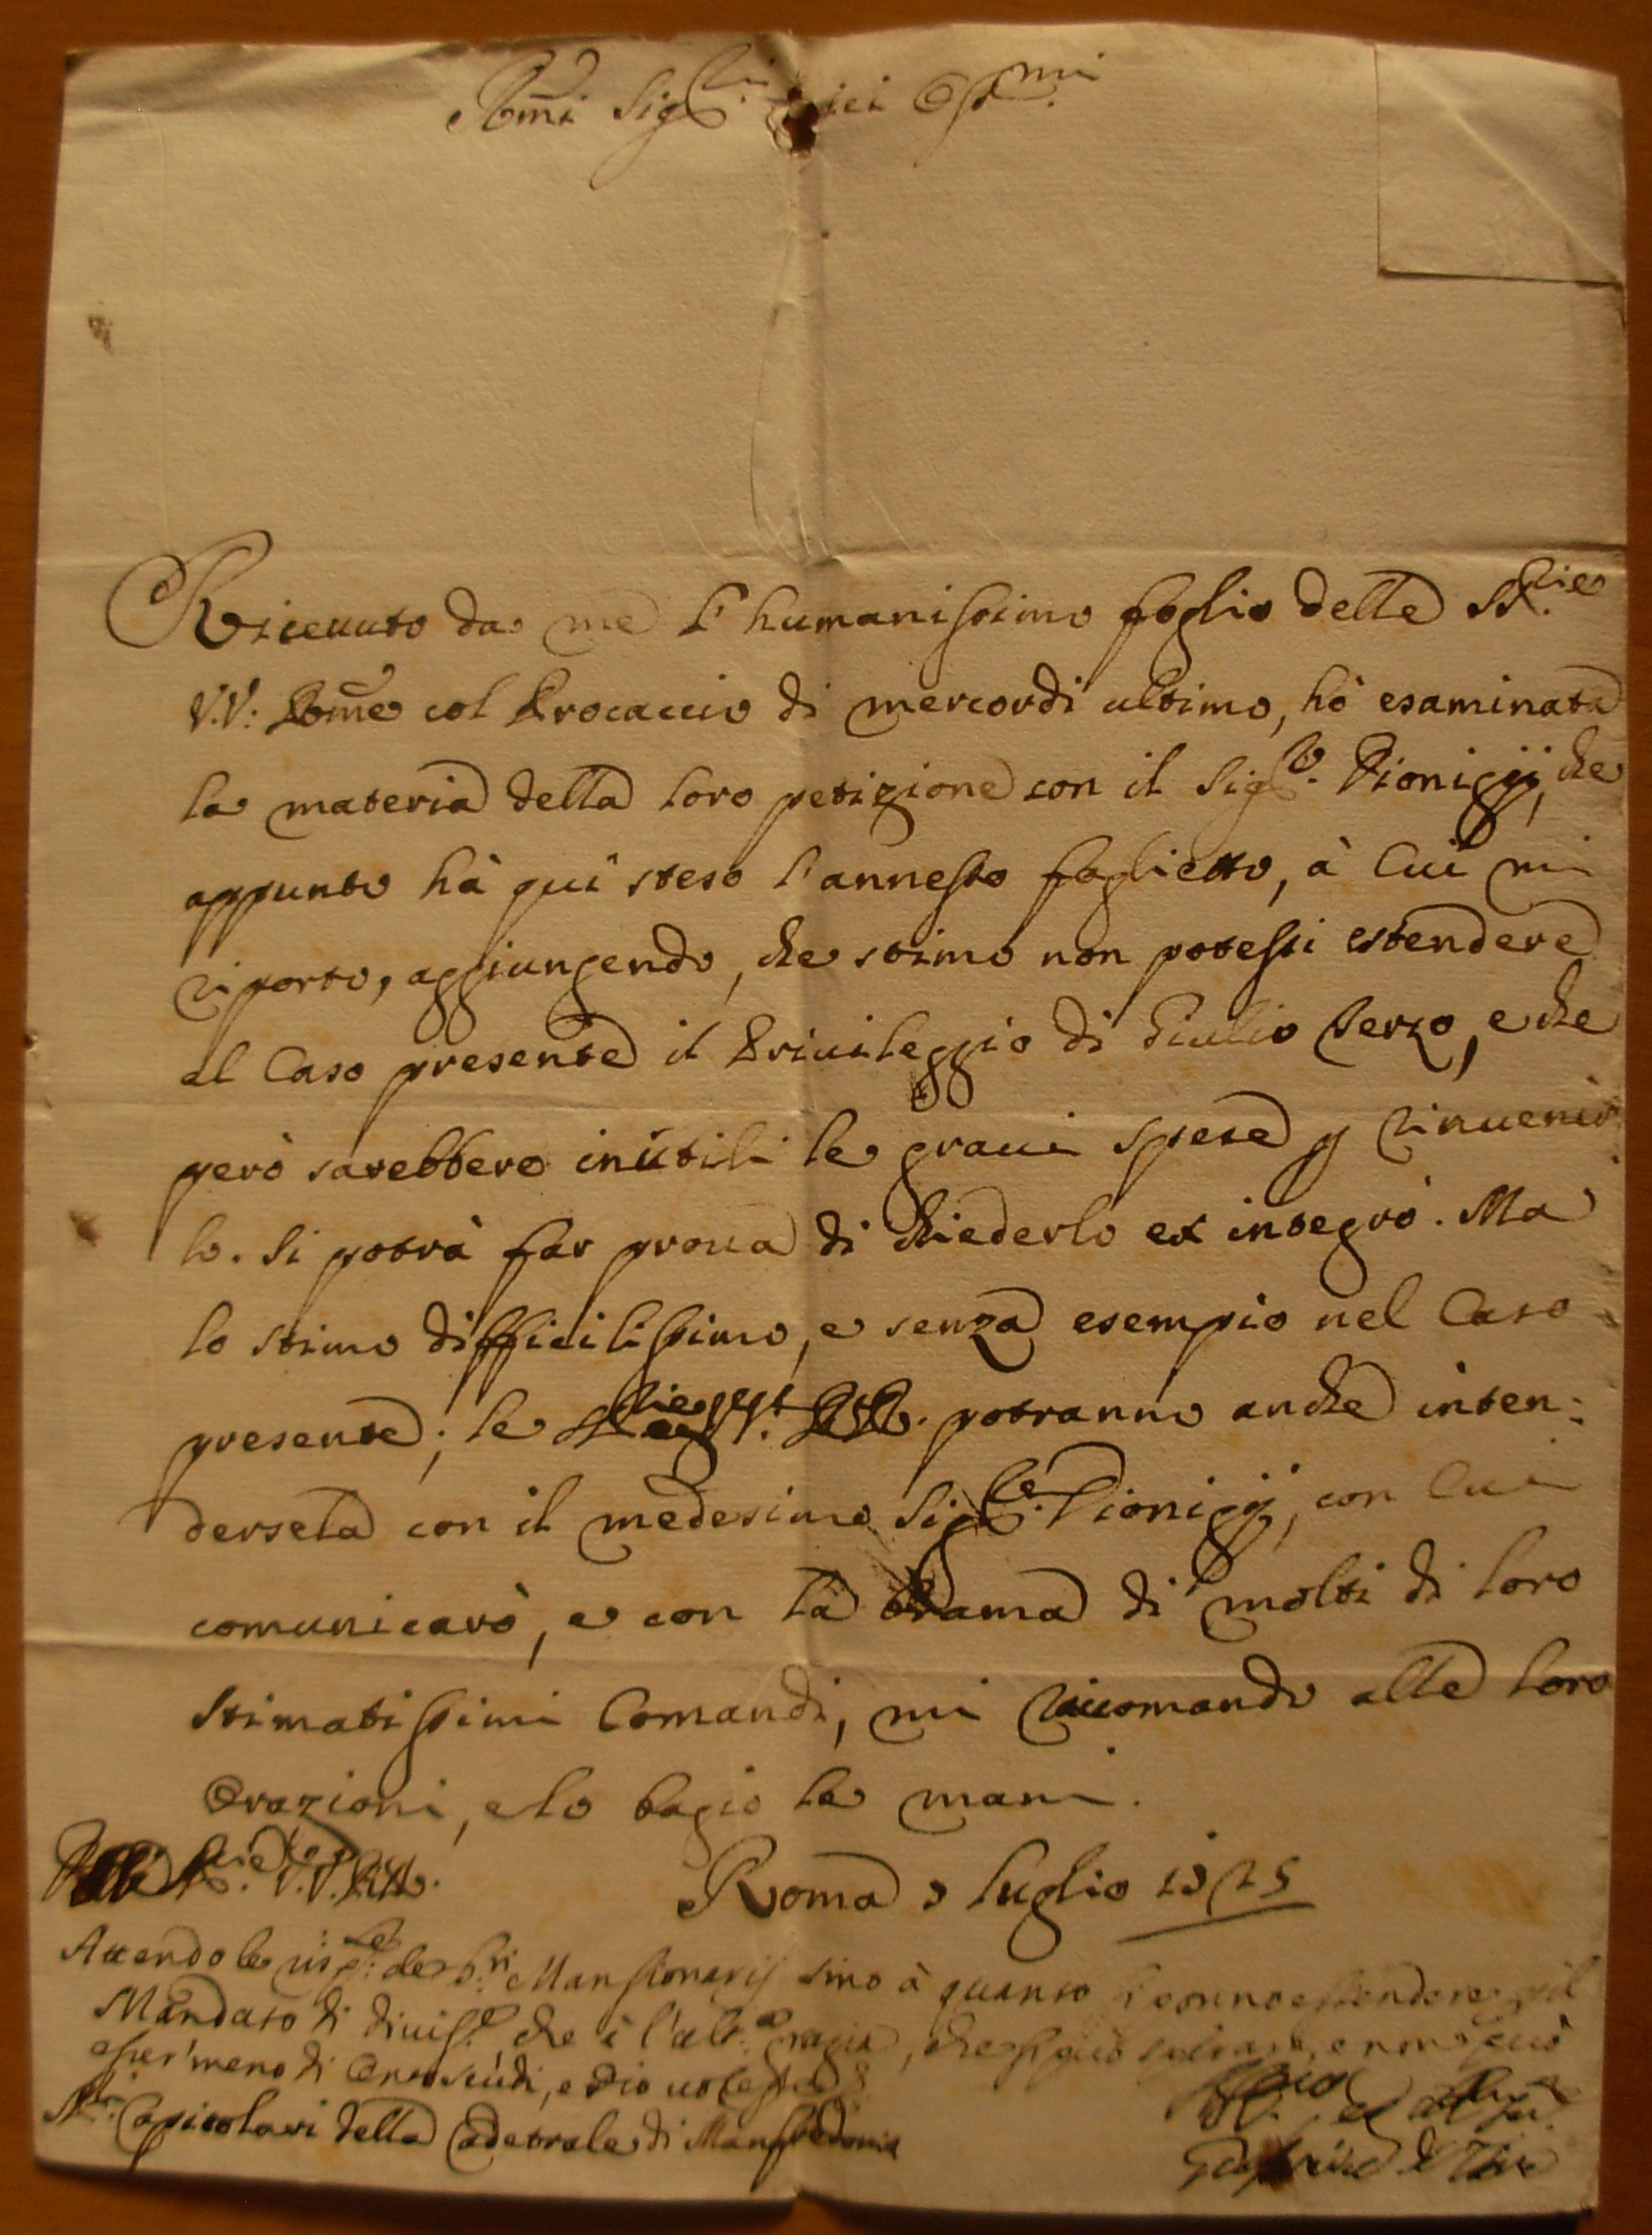 Sig.ri
Riceuuto da me l'humanissimo foglio delle SS.rie
V.V: col Procaccio di mercordi ultimo, hò esaminata
la materia della loro petizione con il Sig.re Dionigij, che
appunto hà qui steso l'annesso foglietto, à cui mi
riporto, aggiungendo, che stimo non potessi estendere
al Caso presente il Priuileggio di Giulio Terzo, e che
però sarebbero inutili le graui spese p rinuenir
lo. Si potrà far proua di chiederlo ex integro. Ma
lo stimo difficilissimo, e senza esempio nel Caso
presente; le potranno anche inten:
dersela con il medesimo Sig.re Dionigij, con cui
comunicarò, e con la brama di molti di loro
stimatissimi Comandi, mi raccomando alle loro
Orazioni, e lo bagio le mani.
V.V.
Roma luglio
Attendo le de S.ri Mansionarij sino à quanto il
Mandato di che è l'alt.a
meno di Cento scudi, e Dio
S.ri Capitolari della Catetrale di Manfredonia